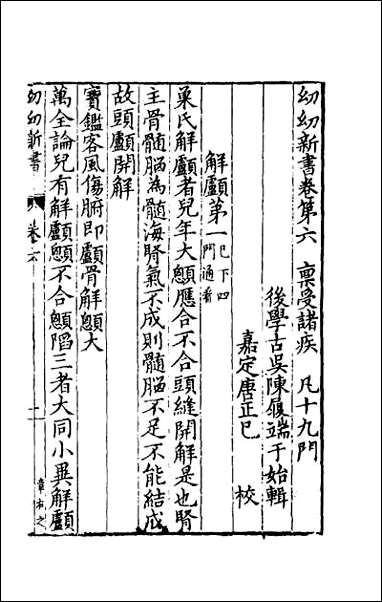 幼幼新書卷第六 禀受諸疾 凡十九門
後學古吳陳履端于始輯
嘉定唐正巳 校
解顱第一 巳下四門通看
巢氏解顱者兒年大顖應合不合頭縫開解是也腎
主骨髓腦為髓海腎氣不成則髓腦不足不能結成
故頭顱開解
寶鑑客風傷腑即顱骨解顖大
萬全論兒有解顱顖不合顖䧟三者大同小異解顱
幼幼新書
卷六
一
章右之